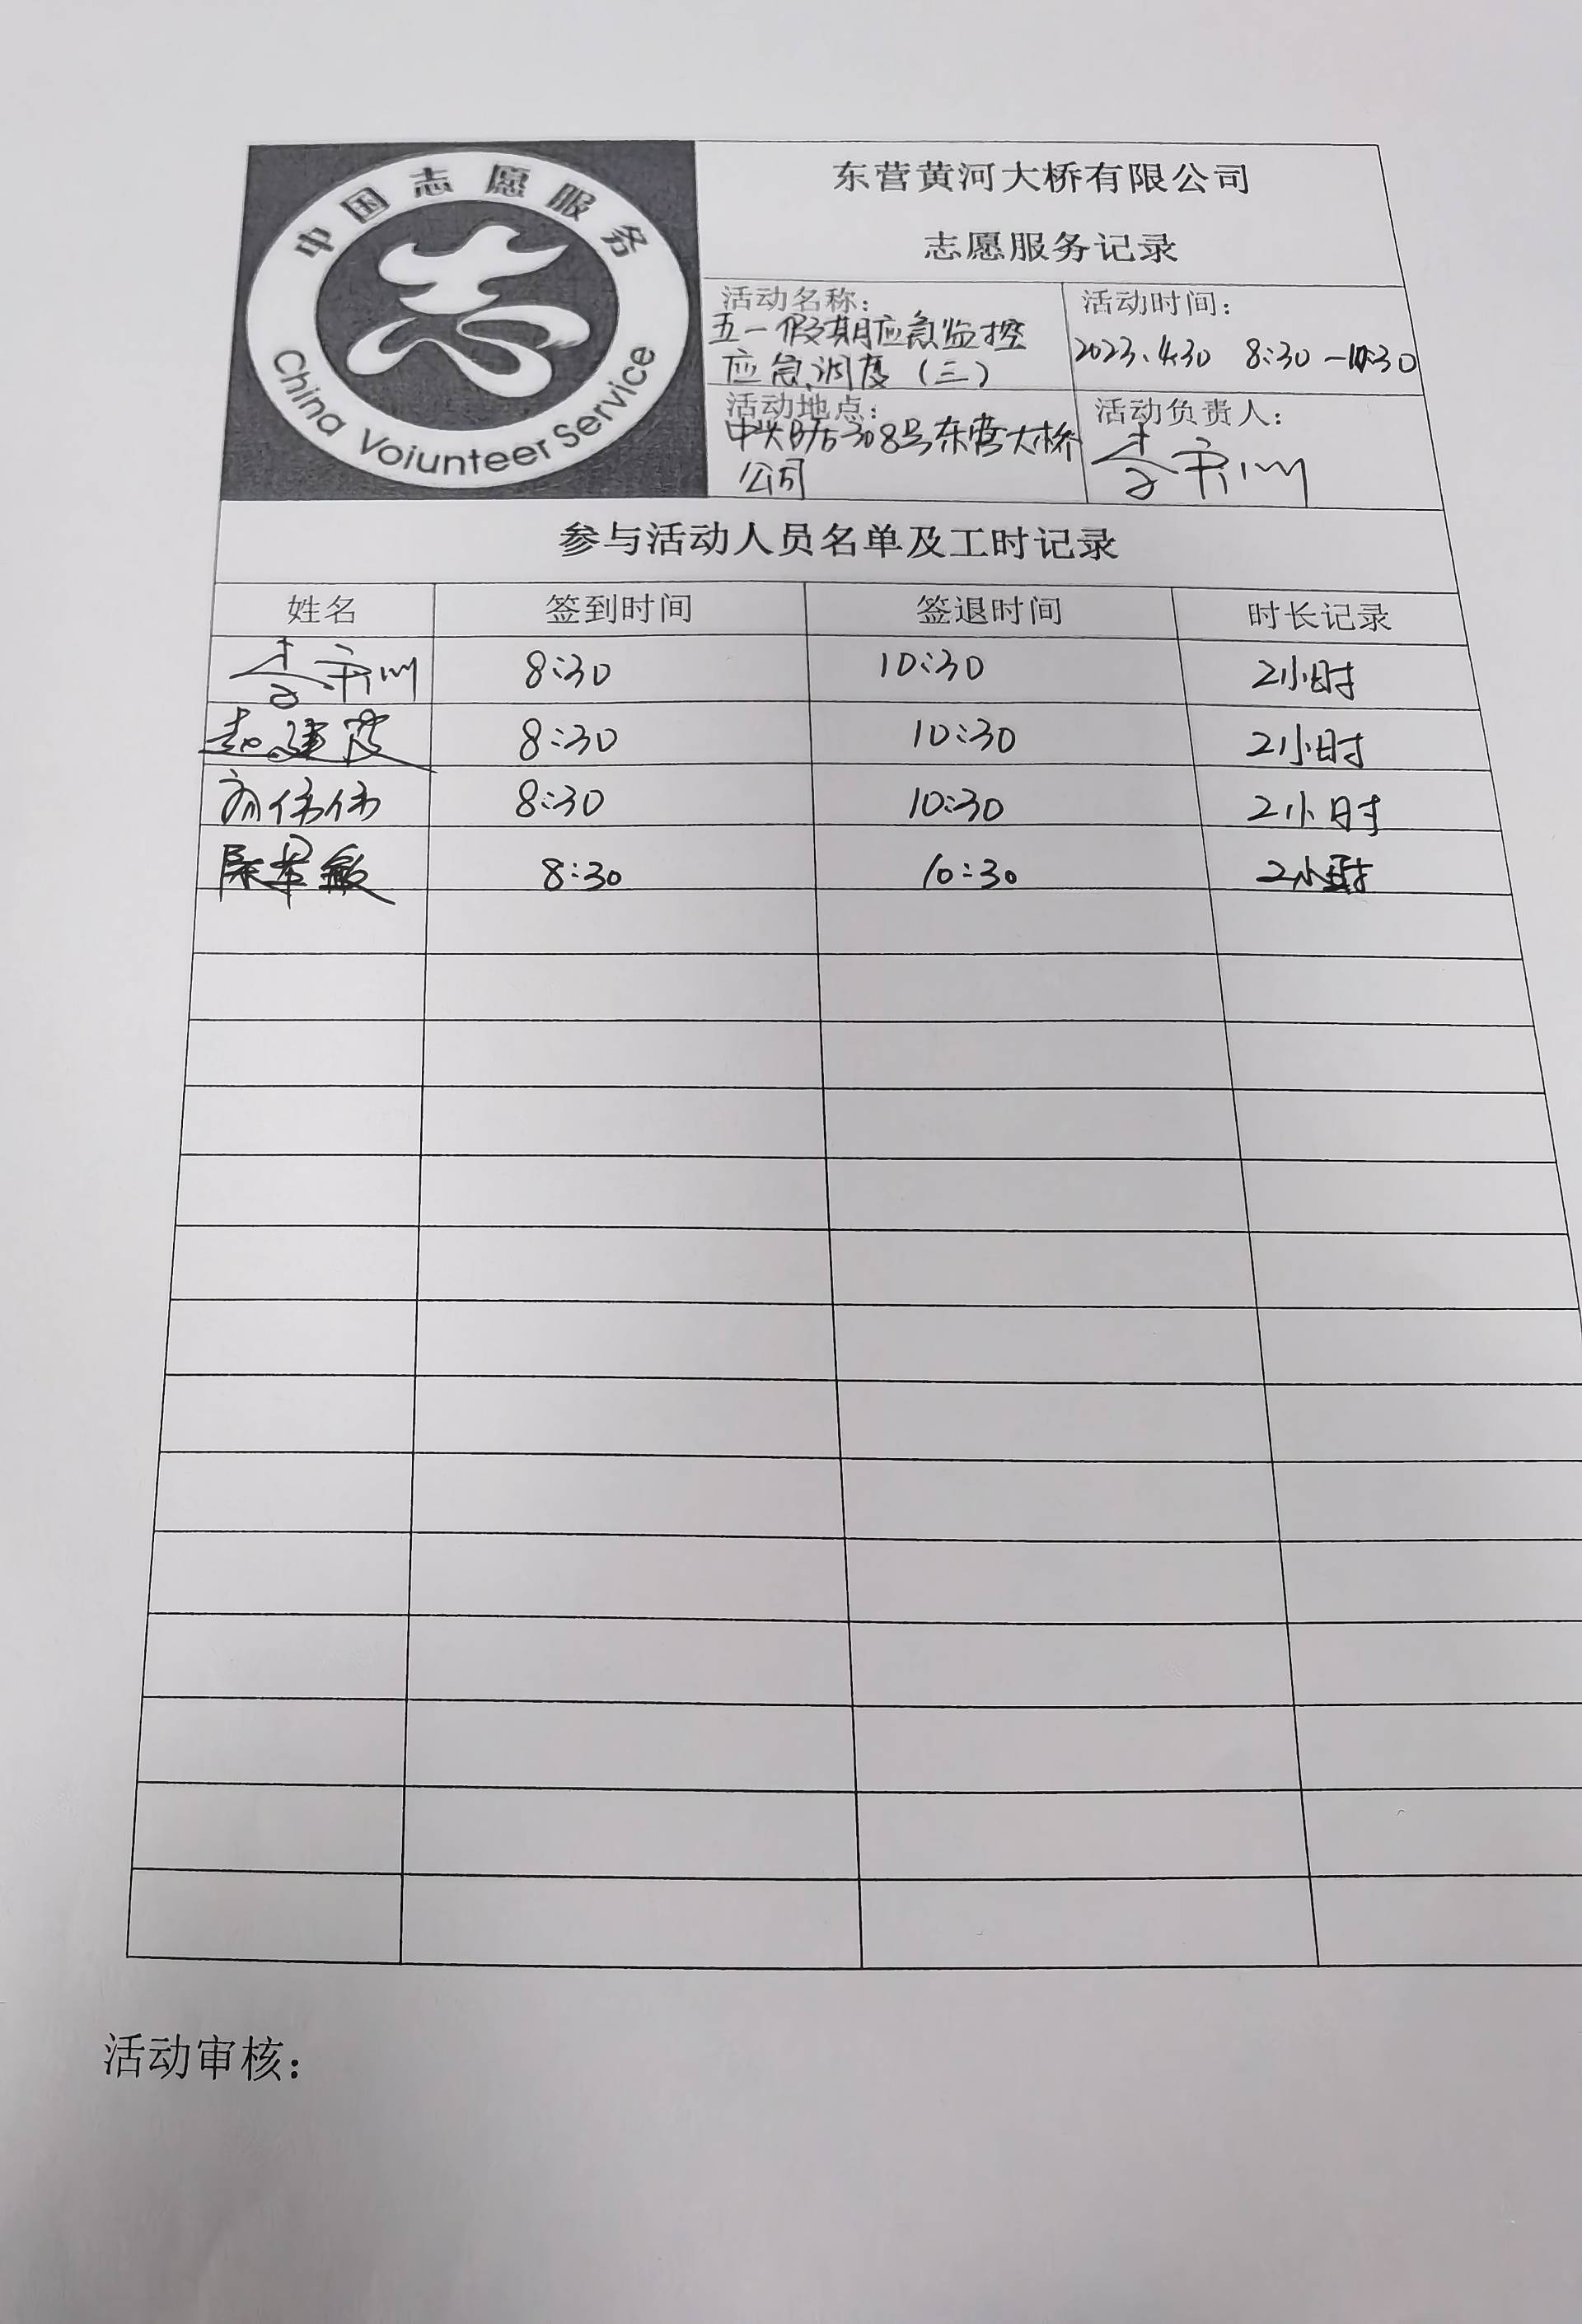 中国志愿服务
China Voiunteer Service
东营黄河大桥有限公司
志愿服务记录
活动名称：
五一假期应急监控
应急调度（三）
活动时间：
2023.4.30 8:30-10:30
活动地点：
308号东营大桥
公司
活动负责人：
参与活动人员名单及工时记录
姓名 签到时间 签退时间 时长记录
8:30 10:30 2小时
8:30 10:30 2小时
8:30 10:30 2小时
8:30 10:30 2小时
活动审核：